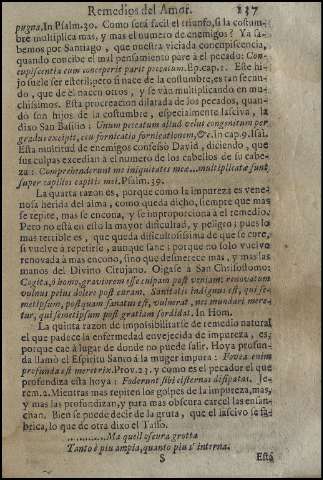 Remedios del Amor. 137
pugna, In Psalm. 30. Como será facil el triunfo, si la costum-
bre multiplica mas, y mas el numero de enemigos? Ya sa-
bemos por Santiago, que nuestra viciada concupiscencia,
quando concibe el mal pensamiento pare à el pecado: Con-
cupiscentia cum conceperit parit peccatum. Ep. cap. 1. Este hi-
jo suele ser esteril, pero si nace de la costumbre, es tan secun-
do, que de èl nacen otros, y se vàn multiplicando en mu-
chissimos. Esta procreacion dilatada de los pecados, quan-
do son hijos de la costumbre, especialmente lasciva, la
dixo San Basilio: Unum peccatum aliud velut congnitum per
gradus excipit, cui fornicatio fornicationem, &c. In cap. 9. Isai.
Esta multitud de enemigos confesso David, diciendo, que
sus culpas excedian à el numero de los cabellos de su cabe-
za: Comprehenderunt me iniquitates mea... multiplicatæ sunt
super capillos capitis mei. Psalm. 39.
La quarta razon es, porque como la impureza es vene-
nosa herida del alma, como queda dicho, siempre que mas
se repite, mas se encona, y se improporciona à el remedio.
Pero no està en esto la mayor dificultad, y peligro; pues lo
mas terrible es, que queda dificultosissima de que se cure,
si vuelve à repetirse, aunque sane; porque no solo vuelve
renovada à mas encono, sino que desmerece mas, y mas las
manos del Divino Cirujano. Oigase à San Chrisostomo:
Cogita, ò homo, graviorem esse culpam post veniam: renovatum
vulnus peius dolere post curam. Sanitatis indignus est, qui se-
metipsum, postquam sanatus est, vulnerat, nec mundari mere-
tur, qui semetipsum post gratiam sordidat. In Hom.
La quinta razon de impossibilitarse de remedio natural
el que padece la enfermedad envejecida de impureza, es,
porque cae à lugar de donde no puede salir. Hoya profun-
da llamò el Espiritu Santo à la muger impura: Fovea enim
profunda est meretrix. Prov. 23. y como es el pecador el que
profundiza esta hoya: Foderunt sibi cisternas dissipatas. Je-
rem. 2. Mientras mas repiten los golpes de la impureza, mas,
y mas las profundizan, y para mas obscura carcel las ensan-
chan. Bien se puede decir de la gruta, que el lascivo se fa-
brica, lo que de otra dixo el Tasso.
........... Ma quell'oscura grotta
Tanto è piu ampia, quanto piu s'interna.
S Està